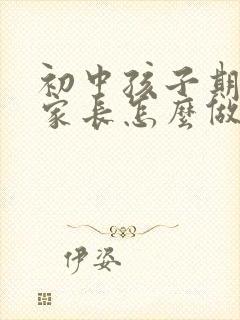 初中孩子期
家长怎麼做
伊姿